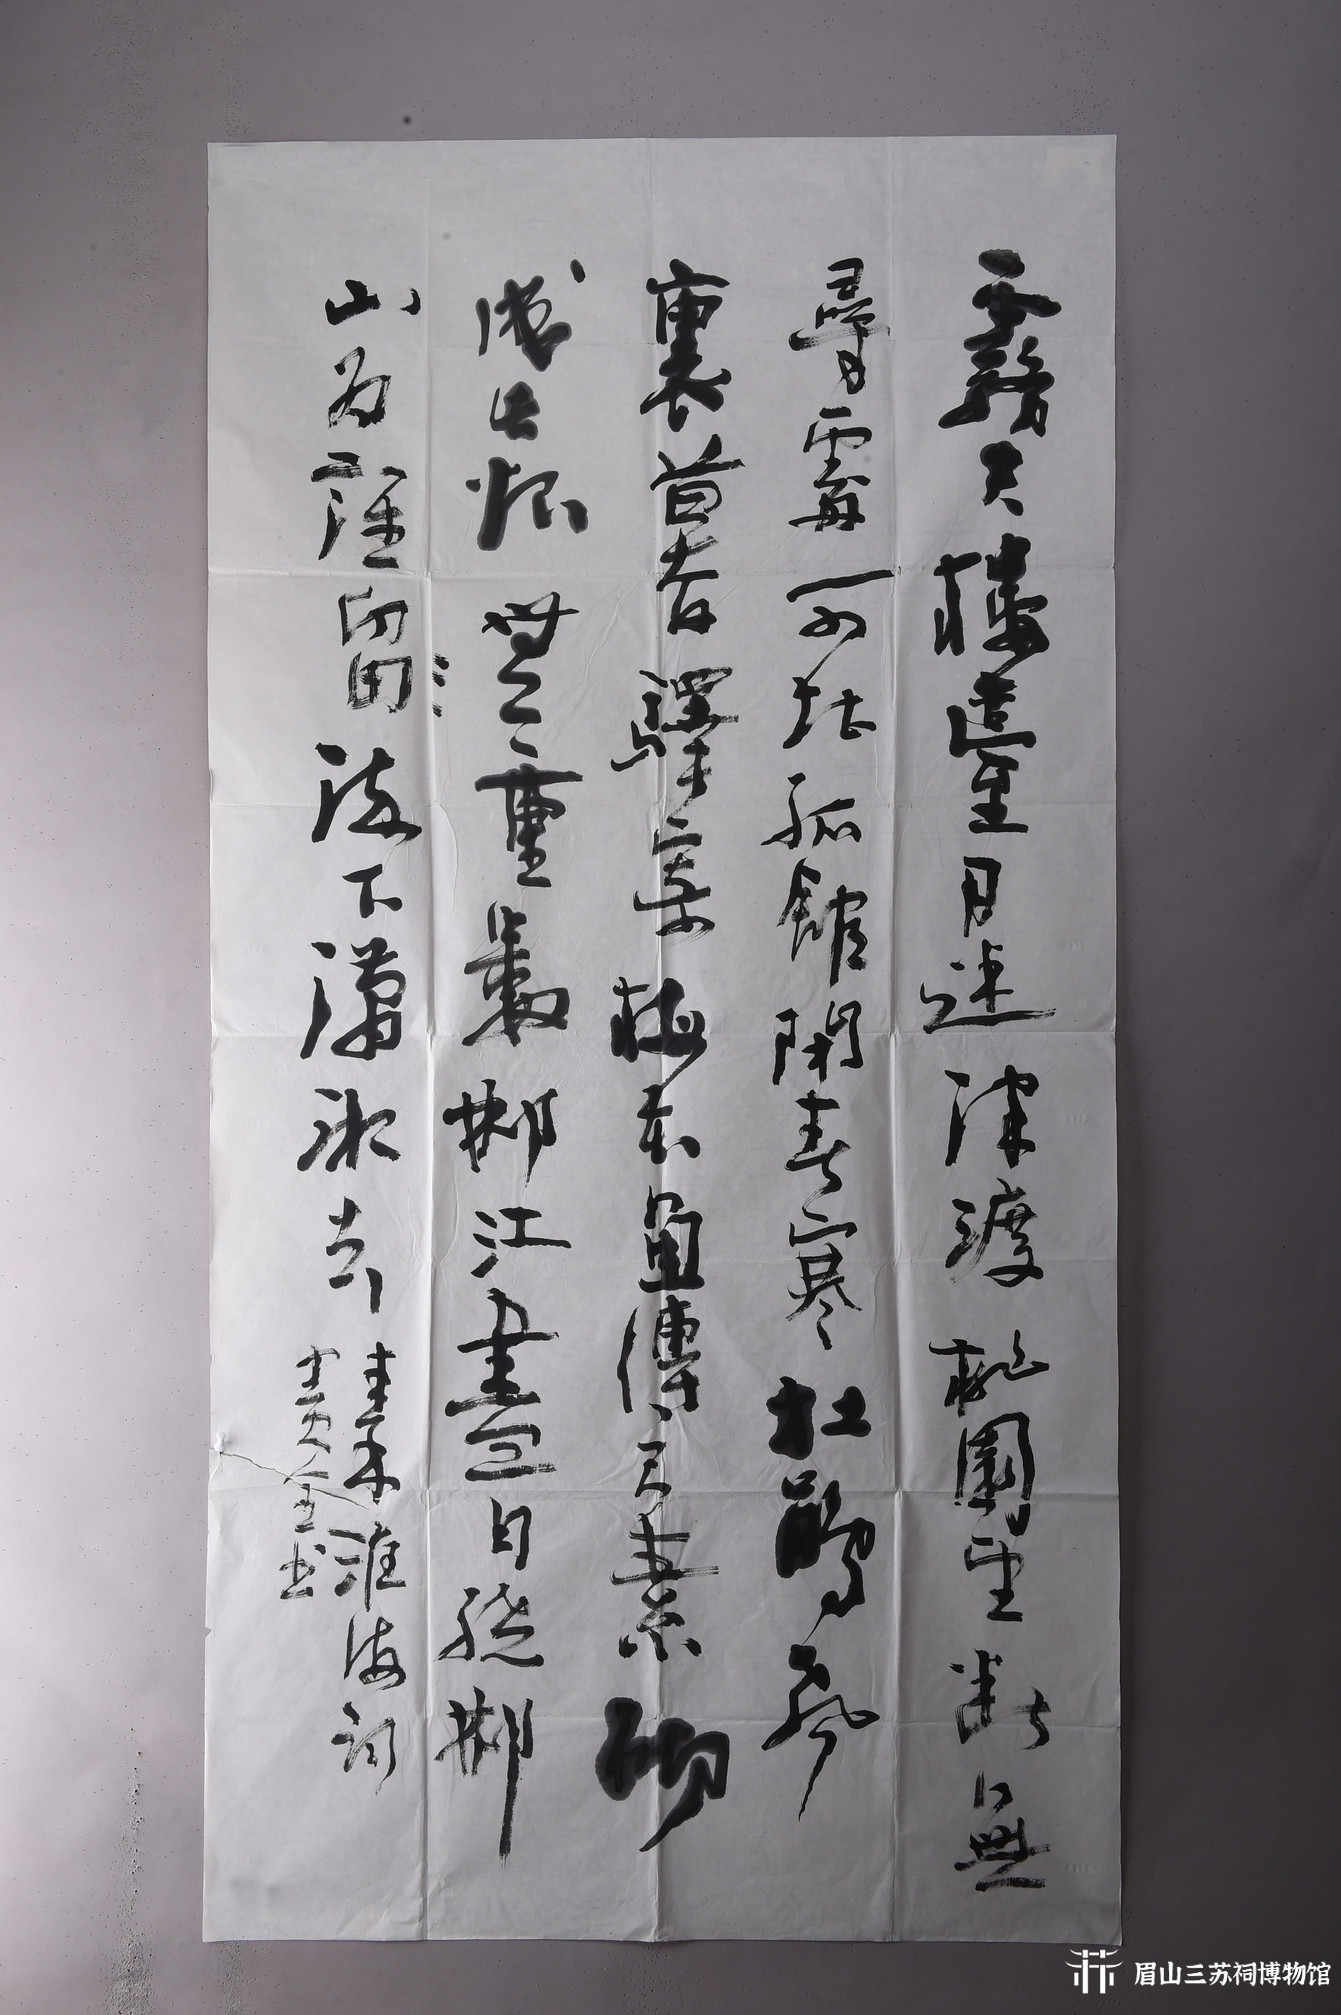 霧失樓臺月迷津渡桃園望斷無
尋處可堪孤館閉春寒杜鵑聲
裏驛寄梅花魚傳尺素砌
成此恨無重數郴江盡日繞郴
山為誰留流下瀟湘去
秦淮海詞
眉山三苏祠博物馆